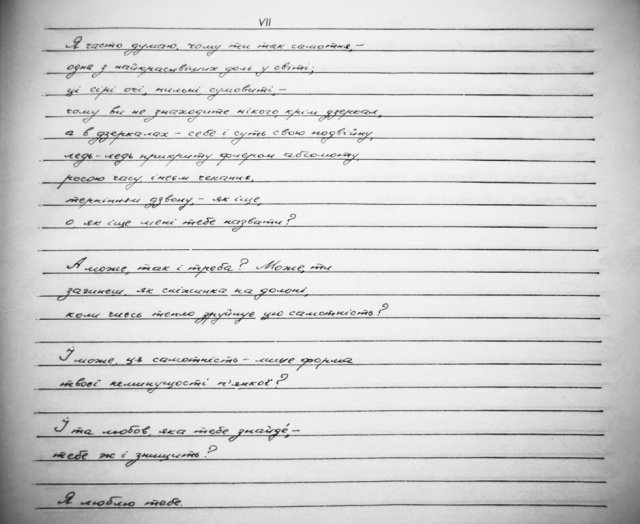 VII
Я часто думаю, чому ти так самотня, –
одна з найкрасивіших доль у світі;
ці сірі очі, пильні, сумовиті, –
чому ви не знаходите нікого, крім дзеркал,
а в дзеркалах – себе і суть свою подвійну,
ледь-ледь прикриту флером абсолюту,
росою часу, інеєм чекання,
терпінням дзвону, – як іще,
о, як іще мені тебе назвати?
А може, так і треба? Може, ти
загинеш, як сніжинка на долоні,
коли чиєсь тепло зруйнує цю самотність?
Й може, ця самотність – лише форма
твоєї неминущості п'янкої?
Й та любов, яка тебе знайде́, –
тебе ж і знищить?
Я люблю тебе.